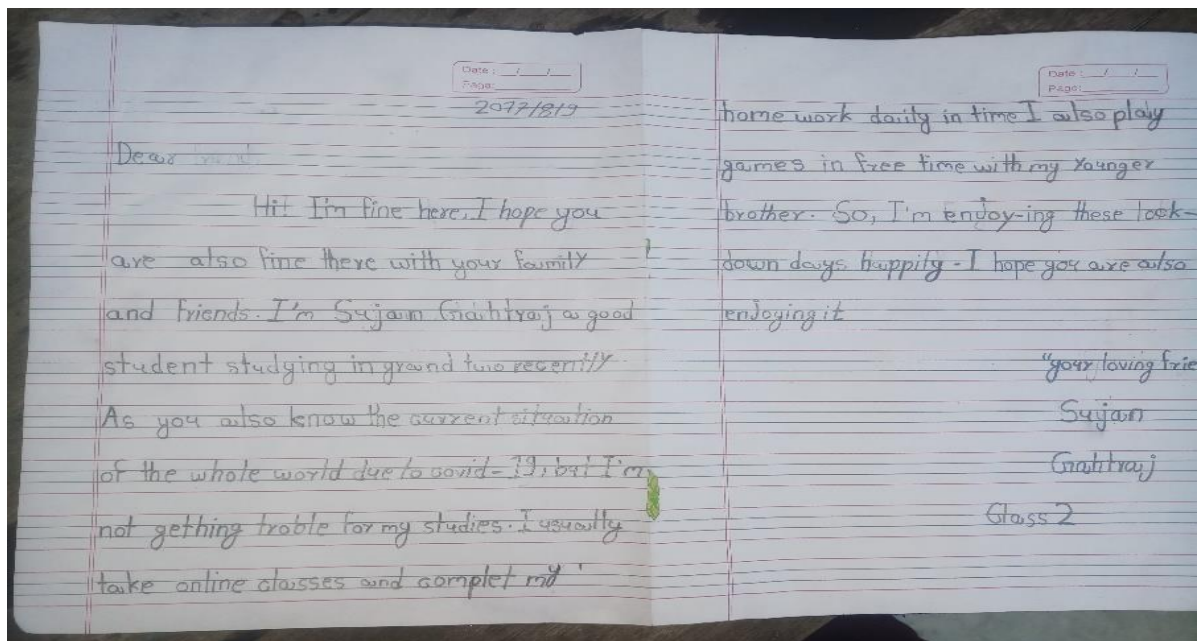 Date : / /
Page:
2077/8/9
Dear friend
Hi! I'm fine here, I hope you
are also fine there with your family
and friends. I'm Sujan Gahtraj a good
student studying in grand two recently
As you also know the current situation
of the whole world due to covid-19, but I'm
not gething troble for my studies. I usually
take online classes and complet my
Date : / /
Page:
home work daily in time I also play
games in free time with my Younger
brother. So, I'm enjoy-ing these lock-
down days happily - I hope you are also
enjoying it
"your loving frie
Sujan
Gahtraj
Class 2